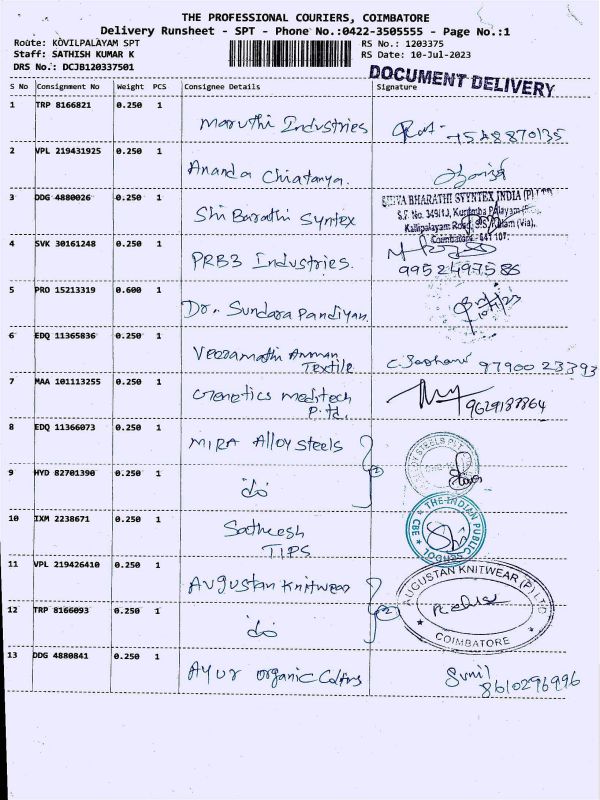 THE PROFESSIONAL COURIERS, COIMBATORE
Delivery Runsheet - SPT - Phone No.:0422-3505555 - Page No.:1
Route: KOVILPALAYAM SPT
Staff: SATHISH KUMAR K
DRS No.: DCJB120337501
RS No.: 1203375
RS Date: 10-Jul-2023
DOCUMENT DELIVERY
S No Consignment No Weight PCS Consignee Details Signature
1 TRP 8166821 0.250 1 Maruthi Industries
2 VPL 219431925 0.250 1 Ananda Chiatanya.
3 DDG 4880026 0.250 1 Shi Barathi Syntex
SHIVA BHARATHI SYYNTEX INDIA (P) LTD
S.F. No. 349/1J, Kurumba Palayam
Kallipalayam Road, S.S. Kulam (Via),
Coimbatore - 641 107.
4 SVK 30161248 0.250 1 PRB3 Industries. 9952497586
5 PRO 15213319 0.600 1 Dr. Sundara Pandiyan.
6 EDQ 11365836 0.250 1 Veeramathi Amman
Textile 97900 23393
7 MAA 101113255 0.250 1 Genetics meditech
P. td. 9629187864
8 EDQ 11366073 0.250 1 MIRA Alloy steels
9 HYD 82701390 0.250 1 do 2
10 IXM 2238671 0.250 1 Satheesh
TIPS
THE INDIAN PUBLIC SCHOOL
CBE
11 VPL 219426410 0.250 1 Augustan Knitwear
AUGUSTAN KNITWEAR (P) LTD
COIMBATORE
12 TRP 8166093 0.250 1 do 2
13 DDG 4880841 0.250 1 Ayur organic Cotfns Sunil
8610296996